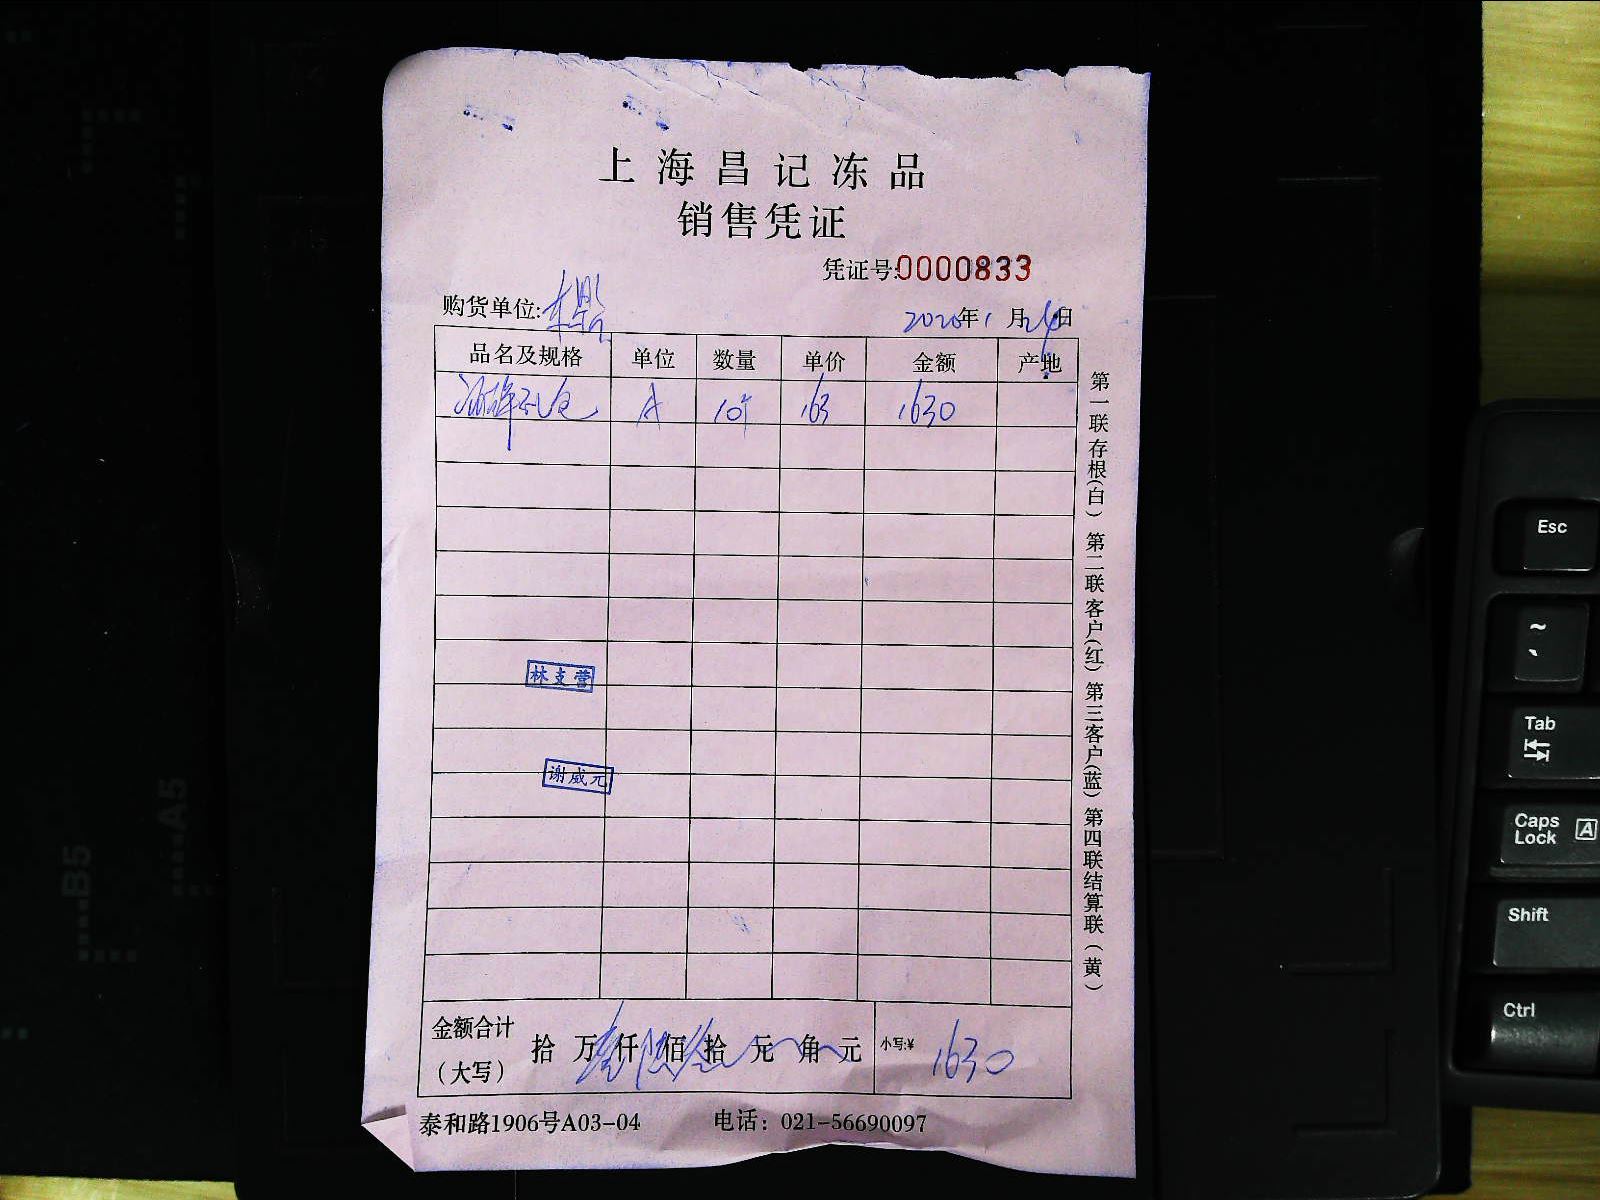 上海昌记冻品
销售凭证
凭证号:0000833
购货单位:
2020年1月24日
品名及规格 单位 数量 单价 金额 产地
A 10个 163 1630
林支营
谢威元
金额合计（大写） 拾 万 壹仟 陆佰 叁拾 元 角 元 小写:¥ 1630
泰和路1906号A03-04 电话：021-56690097
第一联存根(白) 第二联客户(红) 第三客户(蓝) 第四联结算联(黄)
B5
A5
Esc
~
Tab
Caps Lock A
Shift
Ctrl